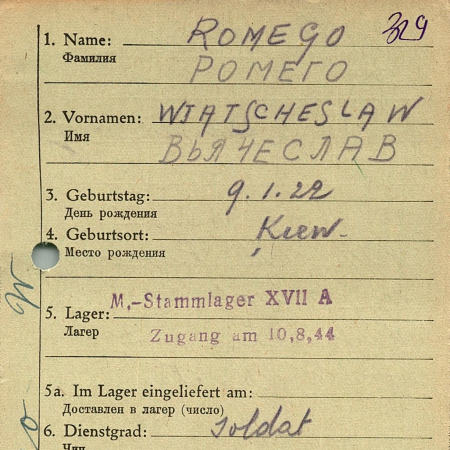 329
1. Name: ROMEGO
Фамилия РОМЕГО
2. Vornamen: WIATSCHESLAW
Имя ВЬЯЧЕСЛАВ
3. Geburtstag: 9.1.22
День рождения
4. Geburtsort: Kiew
Место рождения
M.-Stammlager XVII A
5. Lager:
Лагер Zugang am 10,8,44
5a. Im Lager eingeliefert am:
Доставлен в лагер (число)
6. Dienstgrad: Soldat
Чин